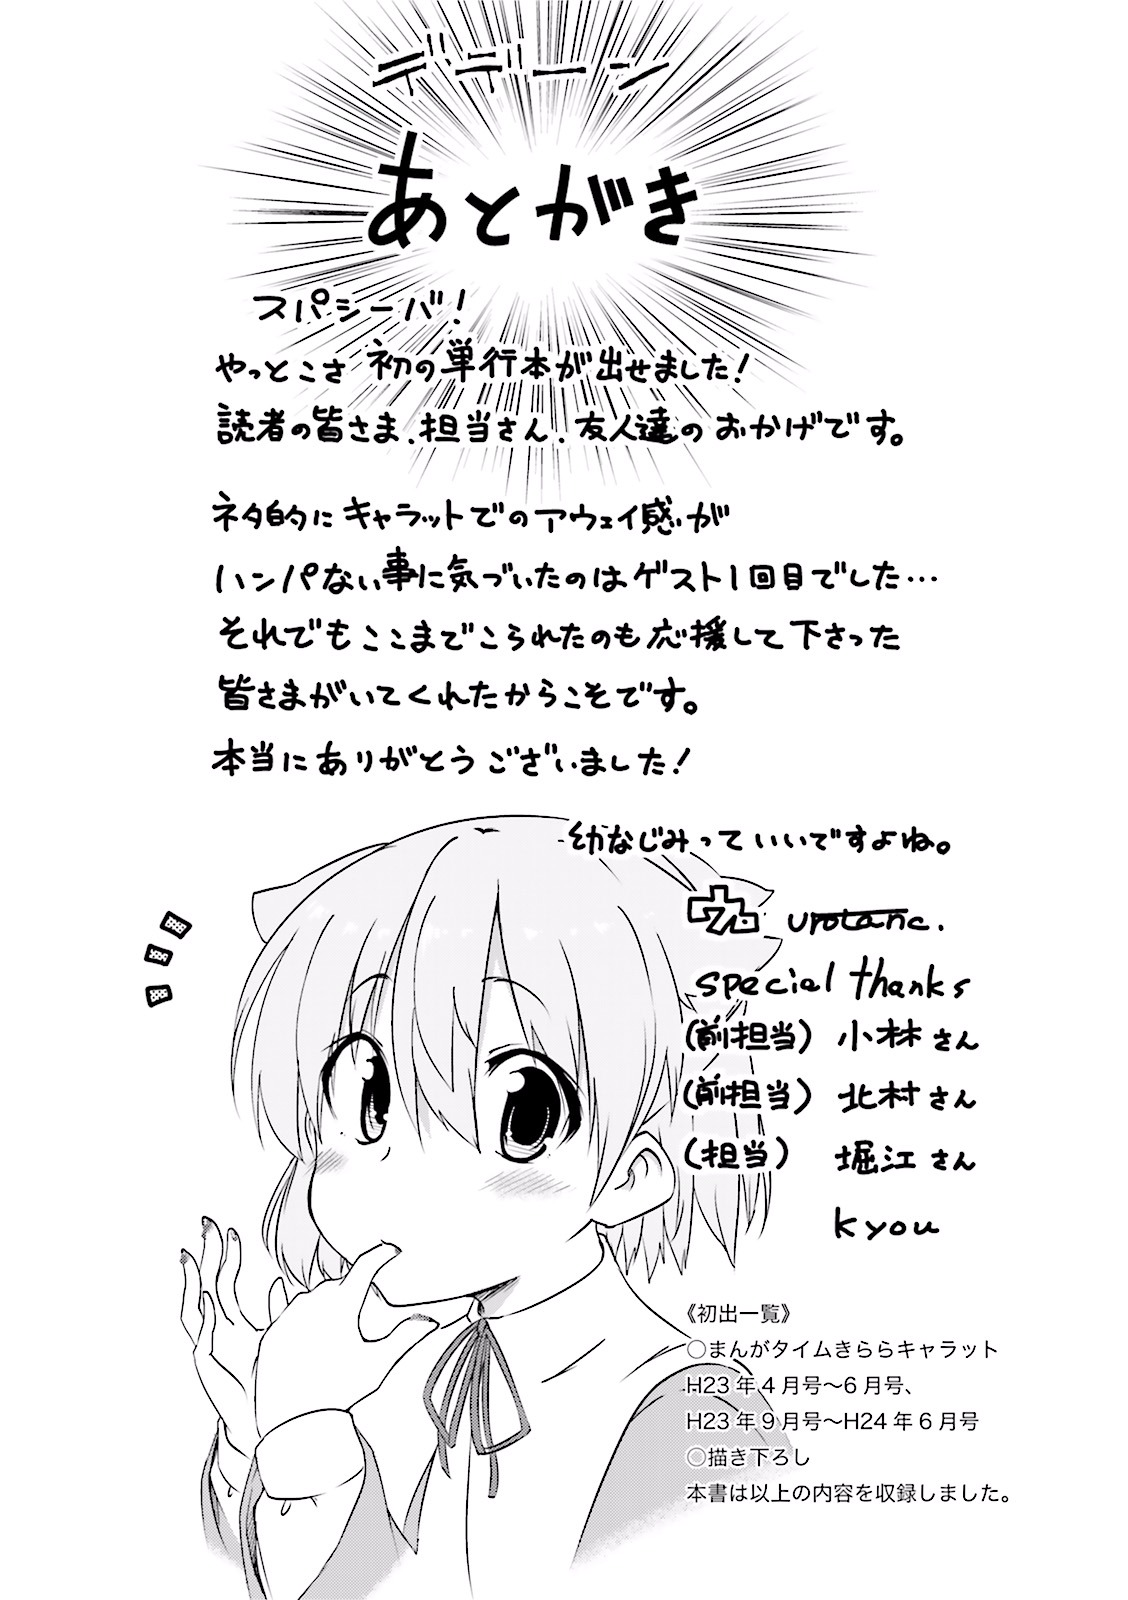 デデーン
あとがき
スパシーバ!
やっとこさ 初の単行本が出せました!
読者の皆さま、担当さん、友人達のおかげです。
ネタ的にキャラットでのアウェイ感が
ハンパない事に気づいたのはゲスト1回目でした…
それでもここまでこられたのも応援して下さった
皆さまがいてくれたからこそです。
本当にありがとうございました!
幼なじみっていいですよね。
ウロ urotanc.
special thanks
(前担当) 小林さん
(前担当) 北村さん
(担当) 堀江さん
kyou
《初出一覧》
○まんがタイムきららキャラット
H23年4月号〜6月号、
H23年9月号〜H24年6月号
○描き下ろし
本書は以上の内容を収録しました。